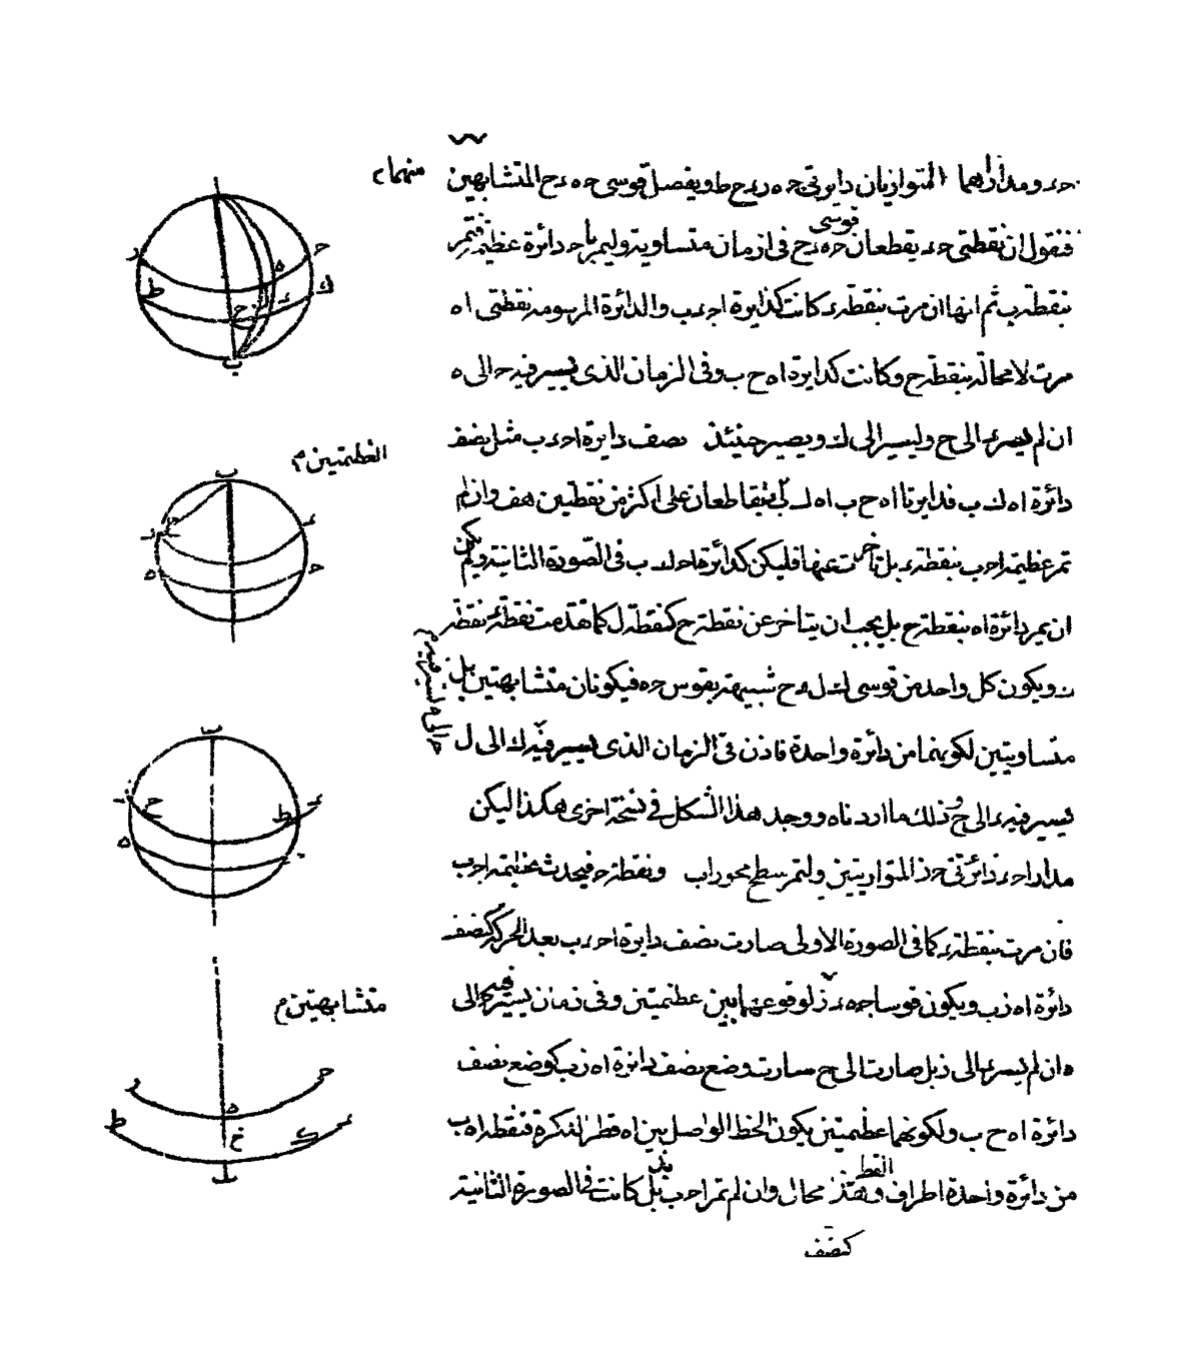 حء ومداراهما المتوازيان دايرتي حه رءح ط ويفصل قوسي حه ءح المتشابهين
منهما م
فنقول ان نقطتي حء يقطعان قوسي حه ءح في ازمان متساوية وليمر با ح دائرة عظيمة فتمر
بنقطة ب ثم انها ان مرت بنقطة ء كانت كدايرة احءب والدائرة المرسومة نقطتي اه
مرت لا محالة بنقطة ح وكانت كدايرة اه ح ب وفي الزمان الذي يسير فيه ح الى ه
ان لم يسر ء الى ح وليسير الى ك ويصير حينئذ نصف دايرة احءب مثل نصف
العظيمتين م
دائرة اه ك ب فدايرتا اه ح ب اه ك ب يتقاطعان على اكثر من نقطتين هف وان لم
تمر عظيمة احب بنقطة ء بل تاخرت عنها فليكن كدائرة احك ب في الصورة الثانية ولم يكن
ان يمر دائرة اه بنقطة ح بل يجب ان يتاخر عن نقطة ح كنقطة ل كما تقدمت نقطة ء نقطة
ك ويكون كل واحد من قوسي ك ل ءح شبيهة بقوس حه فيكونان متشابهتين بل
متساويتين لكونهما من دائرة واحدة فاذن في الزمان الذي يسير فيه ك الى ل
يسير فيه ح الى ه
يسير فيه ء الى ح وذلك ما اردناه ووجد هذا الشكل في نسخة اخرى هكذا ليكن
مدارا حء دائرتي حد المتوازيتين وليمر سطح محور اب ونقطة ح فيحدث عظيمة احب
فان مرت بنقطة ء كما في الصورة الاولى صارت نصف دايرة احءب بعد الحركة كنصف
دائرة اه زب ويكون قوسا حه ءز لوقوعهما بين عظيمتين وفي زمان يسير فيه ح الى
متشابهتين م
ه ان لم يسر ء الى ز بل صارت الى ح صارت وضع نصف دائرة اه زب كوضع نصف
دائرة اه ح ب ولكونهما عظيمتين يكون الخط الواصل بين اه قطر الكرة فنقط اه ب
من دائرة واحدة اطراف القطر وهذا محال وان لم تمر احب بء بل كانت في الصورة الثانية
كنصف